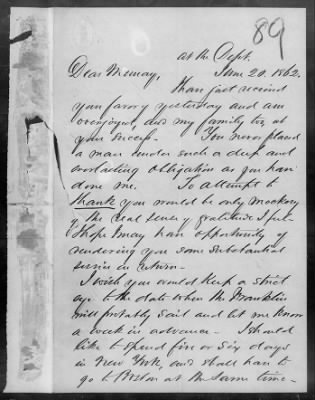 89
at the Dept.
June 20. 1862.
Dear Memay,
Have just received
your favor of yesterday and am
overjoyed, and my family too, at
your success. You never placed
a man under such a deep and
everlasting obligation as you have
done me. To attempt to
thank you would be only mockery
of the real sense of gratitude I feel.
I hope I may have opportunity of
rendering you some substantial
service in return.
I wish you would keep a strict
eye to the date when the Franklin
will probably sail and let me know
a week in advance. I should
like to spend five or six days
in New York, and shall have to
go to Boston at the same time.